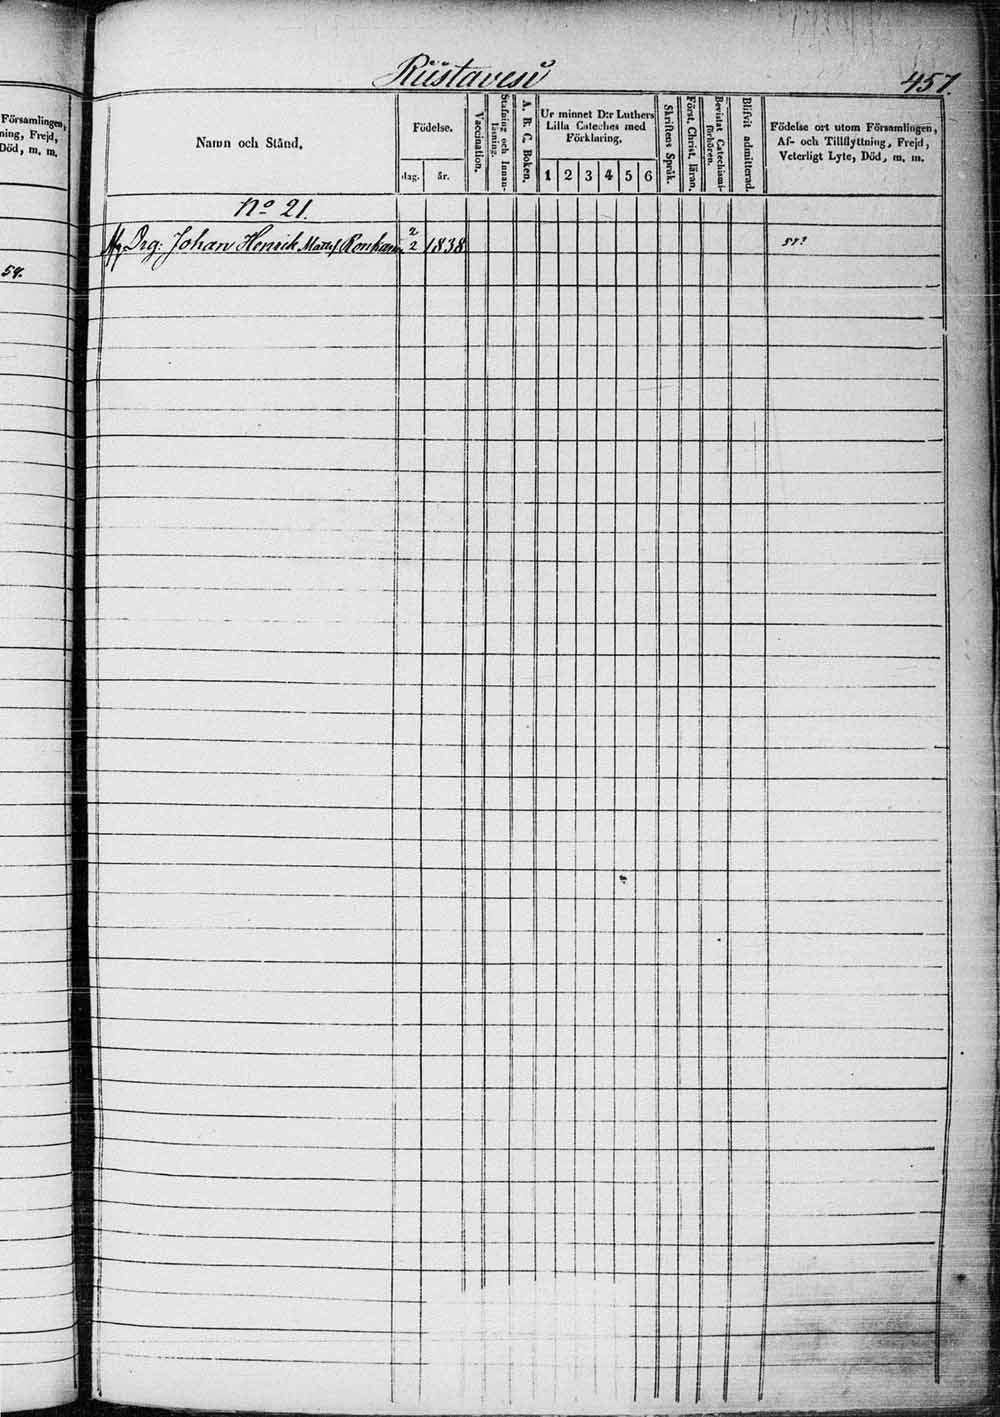 Rüstavesi
457.
Församlingen,
ning, Frejd,
Död, m. m.
Namn och Stånd.
Födelse.
dag.
år.
Vaccination.
Stafning och Innan-
läsning.
A. B. C. Boken.
Ur minnet D:r Luthers
Lilla Cateches med
Förklaring.
1 2 3 4 5 6
Skriftens Språk.
Först. Christ. läran.
Bevistat Catechismi-
förhören.
Blifvit admitterad.
Födelse ort utom Församlingen,
Af- och Tillflyttning, Frejd,
Veterligt Lyte, Död, m. m.
No 21.
Drg: Johan Henrik Matts. 2/2 1838
57.